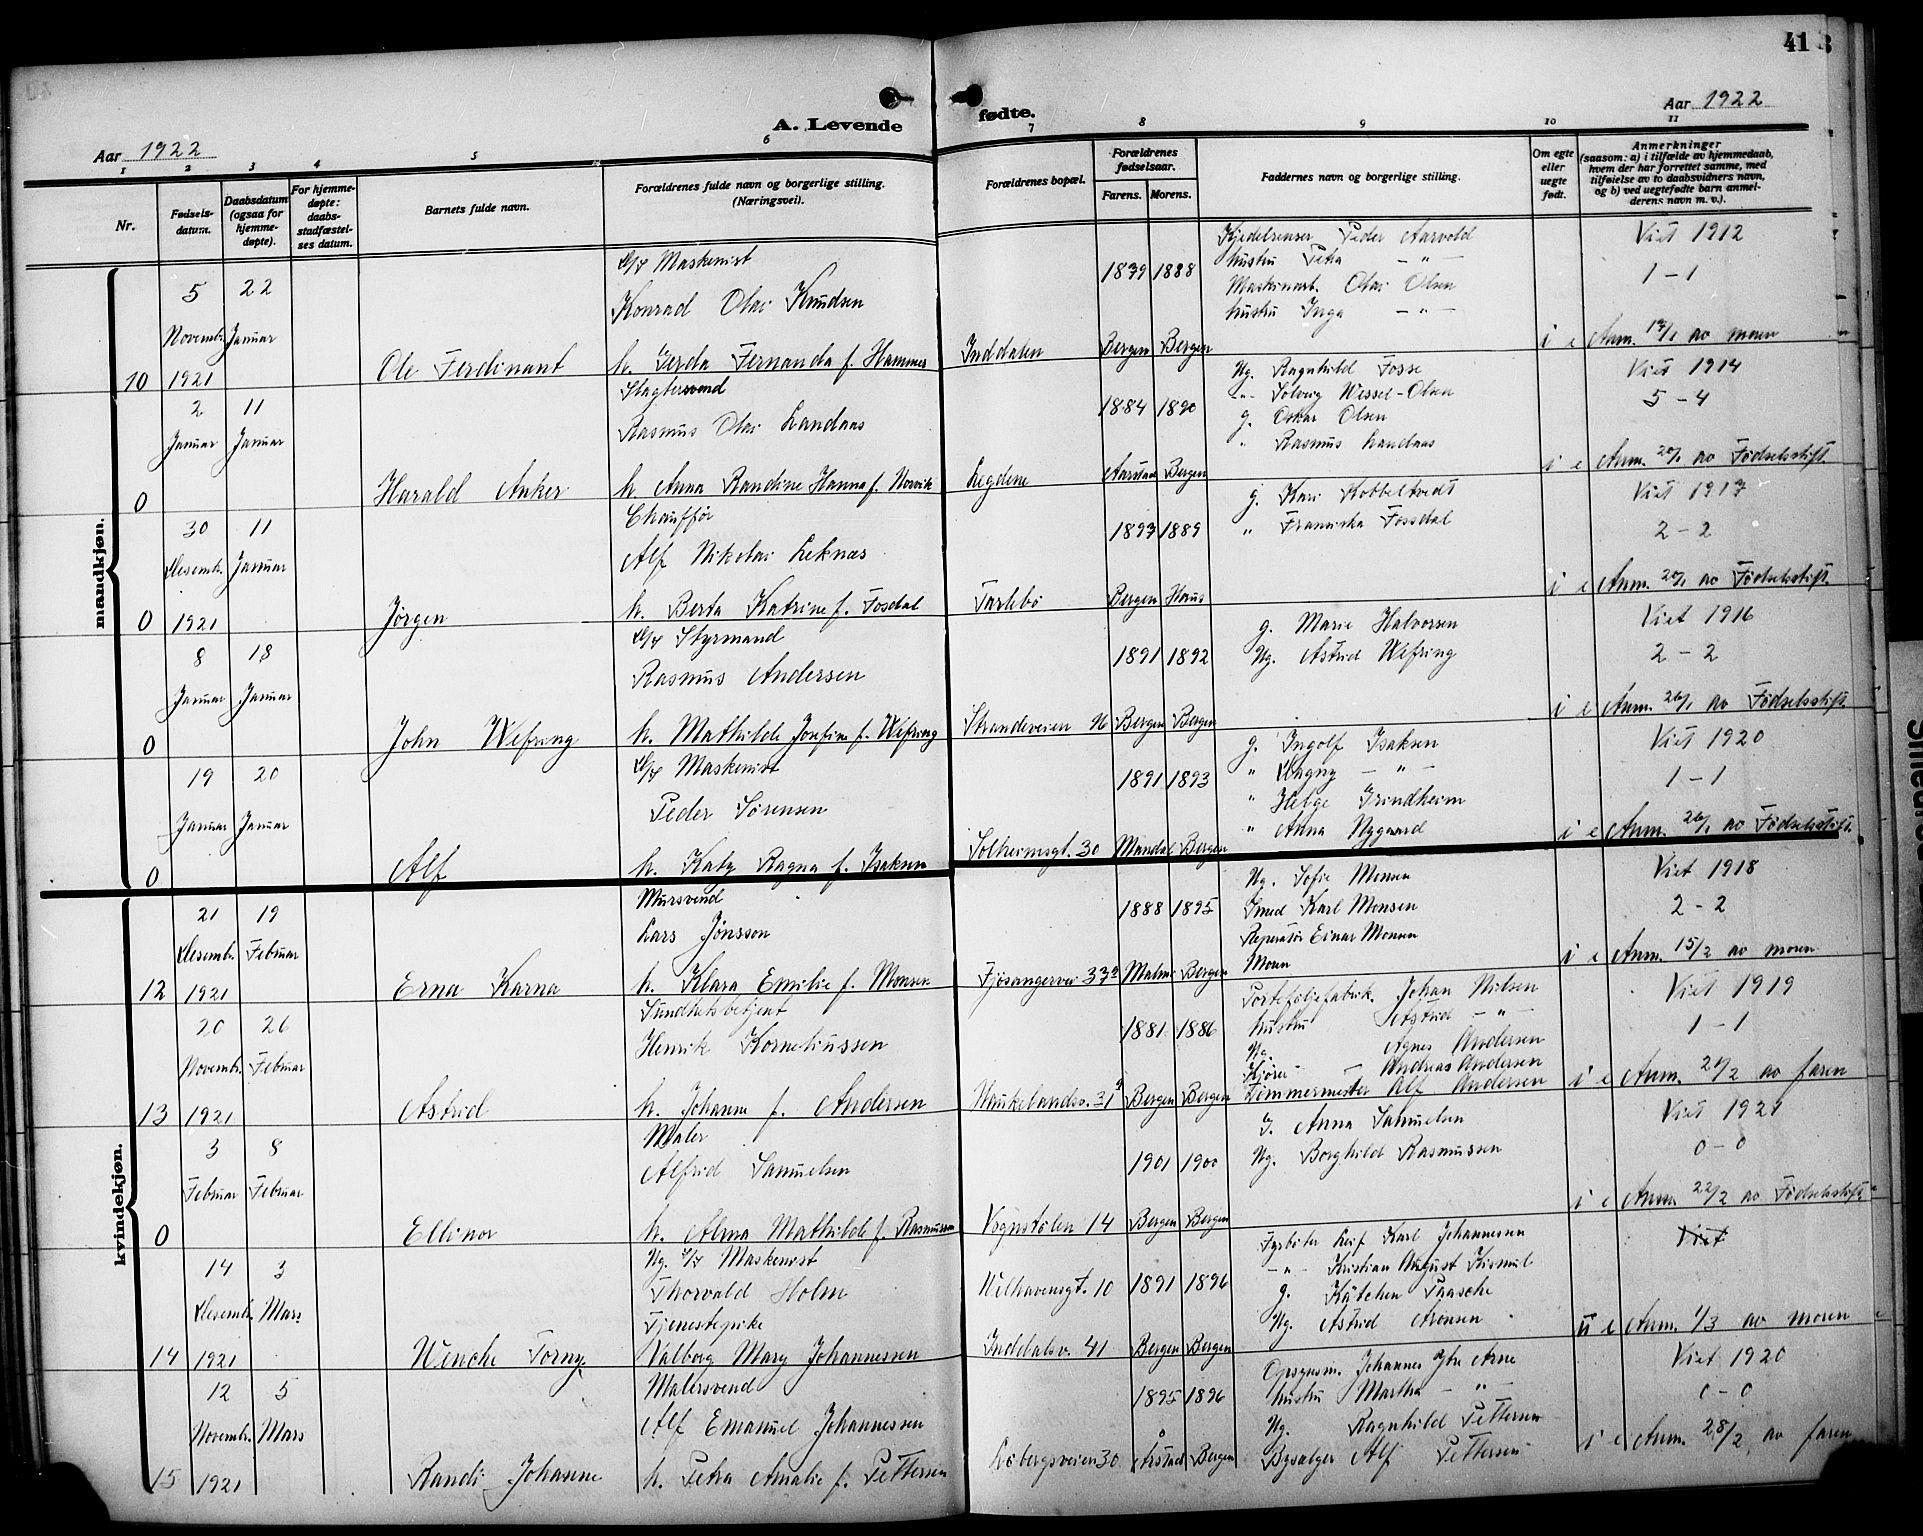 41
A. Levende
fødte.
Aar 1922
Aar 1922
1 2 3 4 5 6 7 8 9 10 11
Nr.
Fødsels-
datum.
Daabsdatum
(ogsaa for
hjemme-
døpte).
For hjemme-
døpte:
daabs-
stadfæstel-
ses datum.
Barnets fulde navn.
Forældrenes fulde navn og borgerlige stilling.
(Næringsvei).
Forældrenes bopæl.
Forældrenes
fødselsaar.
Farens. Morens.
Faddernes navn og borgerlige stilling.
Om egte
eller
uegte
født.
Anmerkninger
(saasom: a) i tilfælde av hjemmedaab,
hvem der har forrettet samme, med
tilføielse av to daabsvidners navn,
og b) ved uegtefødte barn anmel-
derens navn m. v.).
mandkjøn.
10
5 Novembr. 1921
22 Januar
Ole Ferdinant
D/S Maskenist
Konrad Olai Knudsen
h. Gerda Fernanda f. Hammer
Inddalen
1889 1888
Bergen Bergen
Kjedelrenser Peder Aarvold
hustru Petra — " —
Maskinarb. Olai Olsen
hustru Inga — " —
i e
Viet 1912
1 - 1
Anm. 17/1 av moren
0
2 Januar
11 Januar
Harald Anker
Slagtersvend
Rasmus Olai Landaas
h. Anna Randine Hanna f. Norvik
Legdene
1884 1890
Aarstad Bergen
Ug. Ragnhild Fosse
-"- Solveig Wessel-Olsen
g. Oskar Olsen
" Rasmus Landaas
i e
Viet 1914
5 - 4
Anm. 20/1 av Fødselsstift.
0
30 Desembr. 1921
11 Januar
Jørgen
Chauffør
Alf Nikolai Leknæs
h. Berta Katrine f. Fosdal
Tarlebø
1893 1889
Bergen Haus
g. Kari Kobbeltvedt
" Franciska Fossdal
i e
Viet 1917
2 - 2
Anm. 20/1 av Fødselsstift.
0
8 Januar
18 Januar
John Wefring
D/S Styrmand
Rasmus Andersen
h. Mathilde Josfine f. Wefring
Strandeveien 16
1891 1892
Bergen Bergen
g. Marie Halvorsen
Ug. Astrid Wefring
i e
Viet 1916
2 - 2
Anm. 26/1 av Fødselsstift.
0
19 Januar
20 Januar
Alf
D/S Maskenist
Peder Sørensen
h. Katy Ragna f. Isaksen
Solheimsgt. 30
1891 1893
Mandal Bergen
g. Ingolf Isaksen
" Dagny — " —
" Helge Grindheim
" Anna Nygaard
i e
Viet 1920
1 - 1
Anm. 26/1 av Fødselsstift.
kvindekjøn.
12
21 Desembr. 1921
19 Februar
Erna Karna
Mursvend
Lars Jønsson
h. Klara Emilie f. Monsen
Fjøsangervei 33a
1888 1895
Malmø Bergen
Ug. Sofie Monsen
Smed Karl Monsen
Reperatør Einar Monsen
Moren
i e
Viet 1918
2 - 2
Anm. 15/2 av moren
13
20 Novembr. 1921
26 Februar
Astrid
Sundhetsbetjent
Henrik Korneliussen
h. Johanne f. Andersen
Haukelandsv. 31
1881 1886
Bergen Bergen
Porteføljefabrik. Johan Nilsen
hustru Astrid — " —
Ug. Agnes Andersen
Kjører Andreas Andersen
Tømmermester Alf Andersen
i e
Viet 1919
1 - 1
Anm. 20/2 av faren
0
3 Februar
8 Februar
Ellinor
Maler
Alfrid Samuelsen
h. Alma Mathilde f. Rasmussen
Vognstølen 14
1901 1900
Bergen Bergen
g. Anna Samuelsen
Ug. Borghild Rasmussen
i e
Viet 1921
0 - 0
Anm. 22/2 av Fødselsstift.
14
14 Desembr. 1921
3 Mars
Wenche Torny
Ug. D/S Maskenist
Thorvald Holm
Tjenestepike
Valborg Mary Johannessen
Welhavensgt. 10
Inddalsv. 41
1891 1896
Bergen Bergen
Fyrbøter Leif Karl Johannesen
-"- Kristian August Kismul
g. Kätchen Paasche
Ug. Astrid Aronsen
u e
Viet
Anm. 1/3 av moren
15
12 Novembr. 1921
5 Mars
Randi Johanne
Malersvend
Alf Emanuel Johannessen
h. Petra Amalie f. Pettersen
Løbergsveien 30
1895 1896
Årstad Bergen
Opsynsm. Johannes Ytre Arne
hustru Martha — " —
Ug. Ragnhild Pettersen
Bysælger Alf Pettersen
i e
Viet 1920
0 - 0
Anm. 28/2 av faren